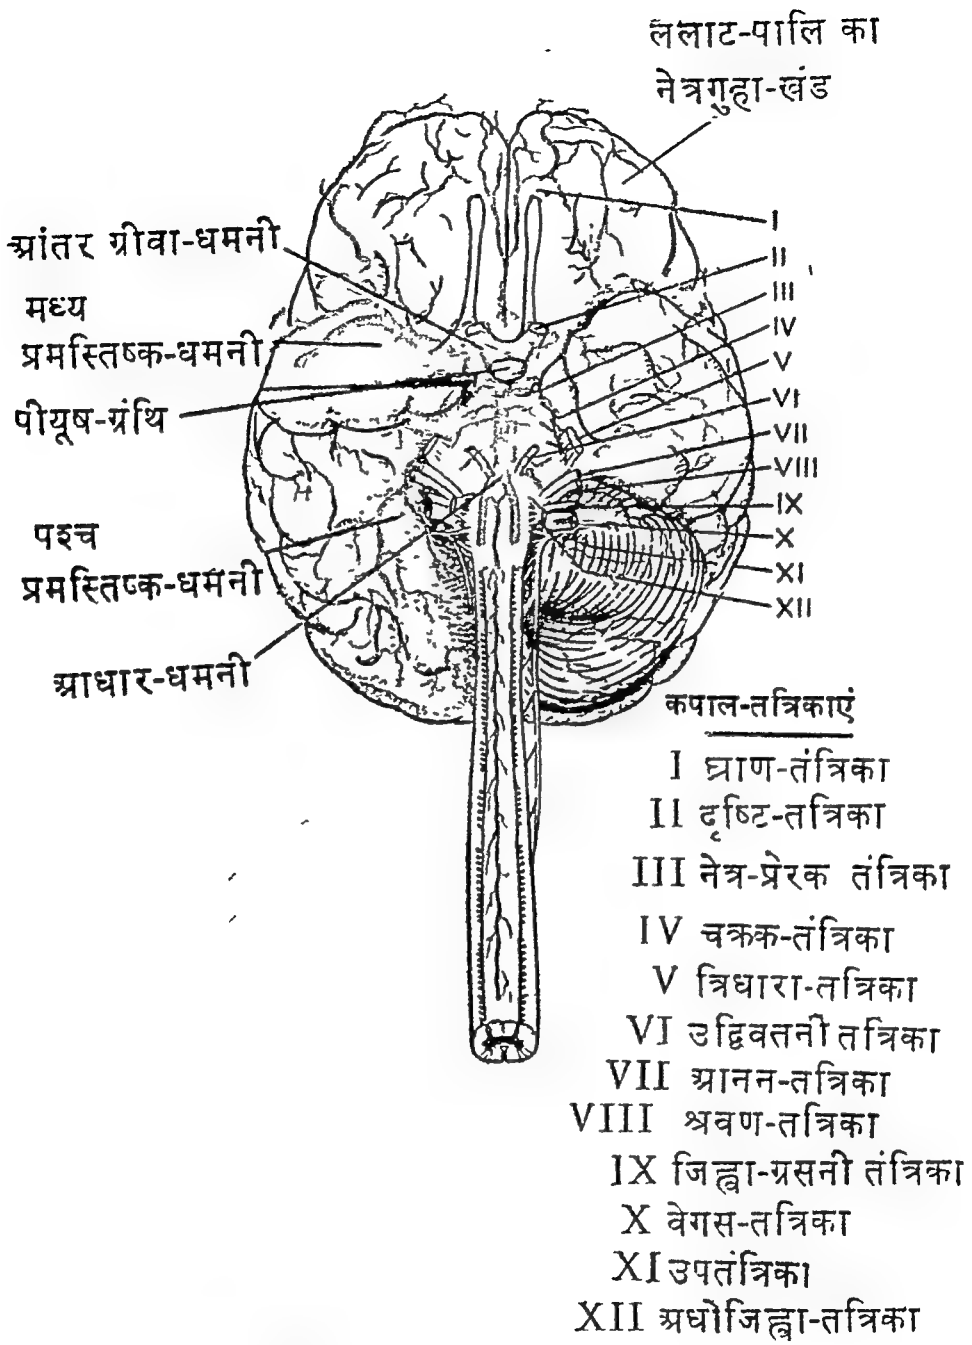 ललाट-पालि का
नेत्रगुहा-खंड
आंतर ग्रीवा-धमनी
मध्य
प्रमस्तिष्क-धमनी
पीयूष-ग्रंथि
पश्च
प्रमस्तिष्क-धमनी
आधार-धमनी
I
II
III
IV
V
VI
VII
VIII
IX
X
XI
XII
कपाल-तत्रिकाएं
I घ्राण-तंत्रिका
II दृष्टि-तत्रिका
III नेत्र-प्रेरक तंत्रिका
IV चक्रक-तंत्रिका
V त्रिधारा-तत्रिका
VI उद्विवतनी तत्रिका
VII आनन-तत्रिका
VIII श्रवण-तत्रिका
IX जिह्वा-ग्रसनी तंत्रिका
X वेगस-तत्रिका
XI उपतंत्रिका
XII अधोजिह्वा-तत्रिका